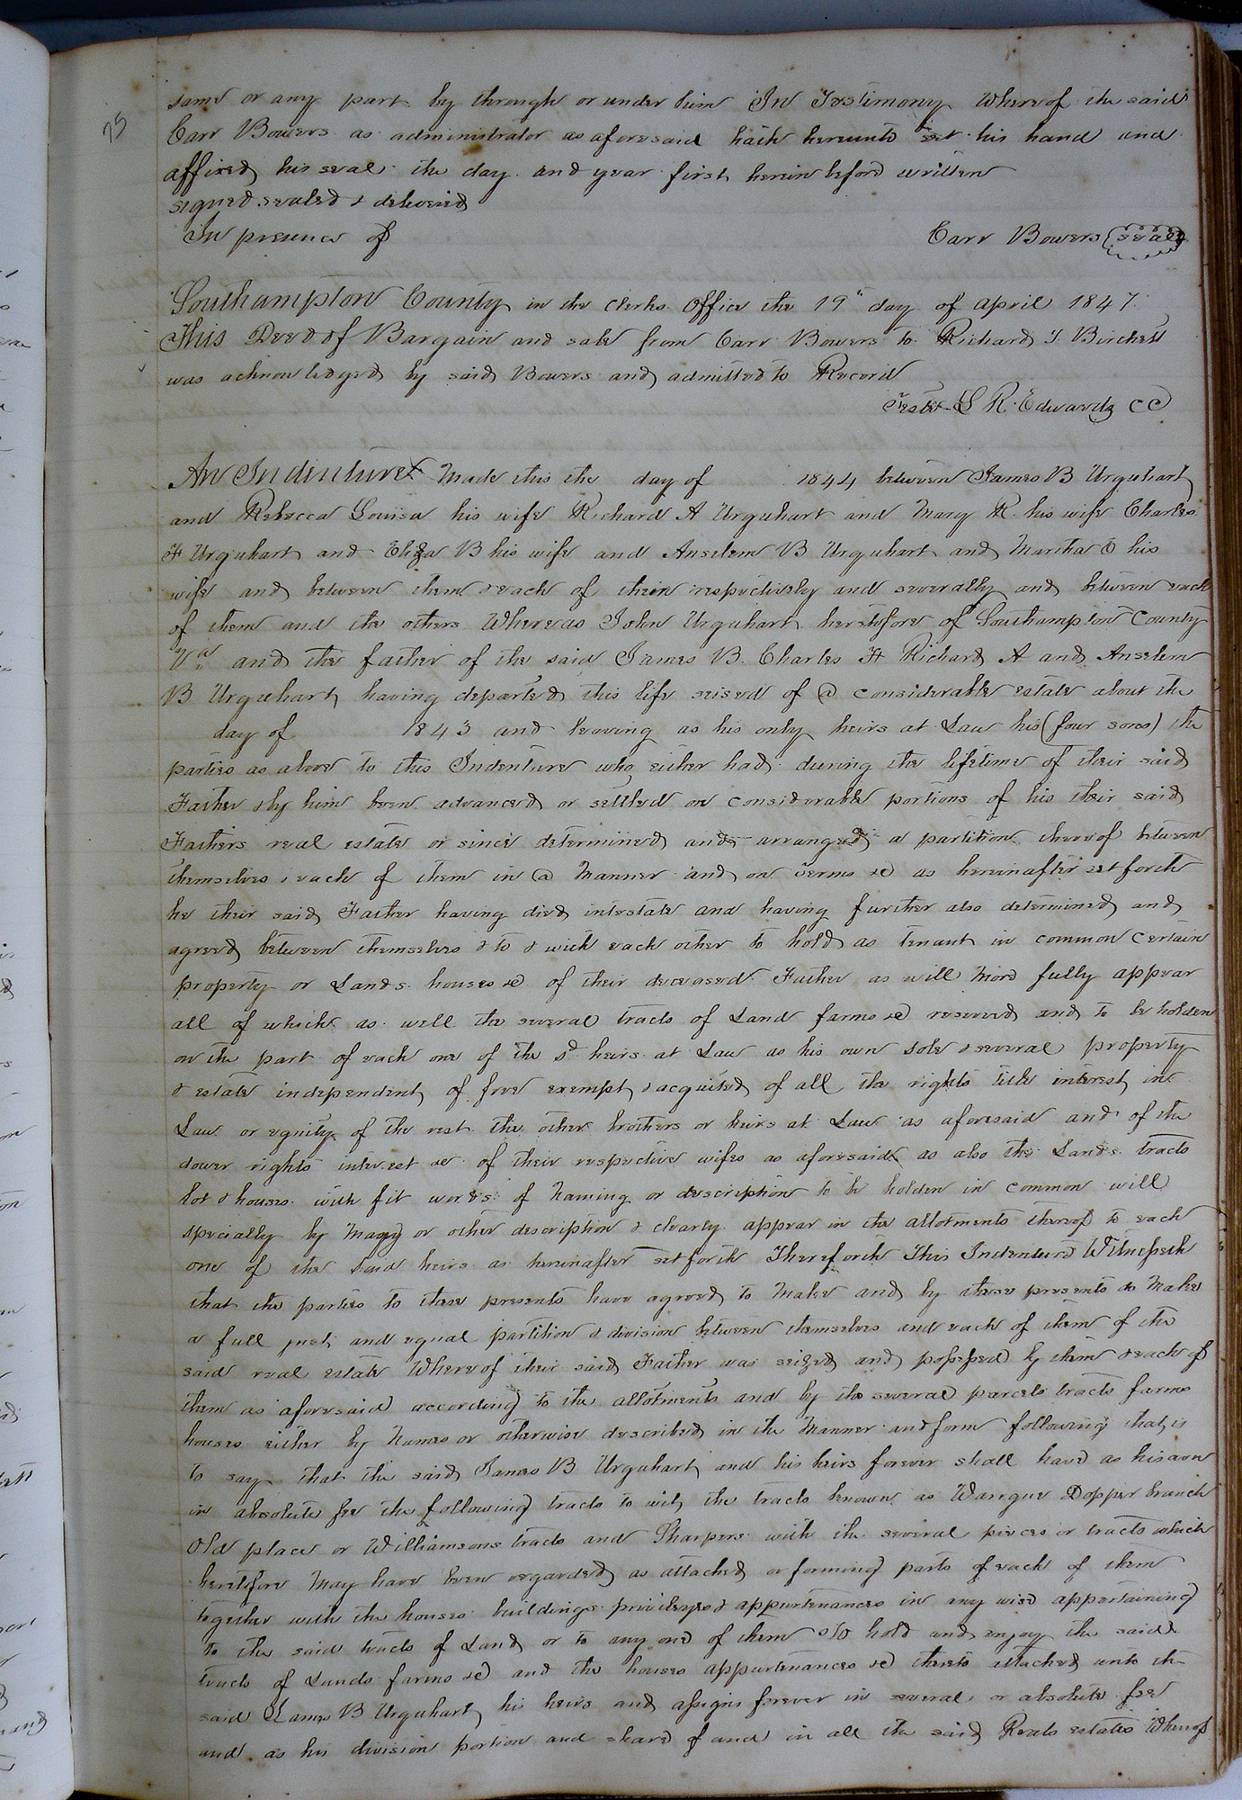 75
same or any part by through or under him In Testimony Whereof the said
Carr Bowers as administrator as aforesaid hath hereunto set his hand and
affixed his seal the day and year first herein before written
signed sealed & delivered
In presence of Carr Bowers seal
Southampton County in the Clerks Office the 19th day of April 1847
This Deed of Bargain and sale from Carr Bowers to Richard T Birchett
was acknowledged by said Bowers and admitted to Record
Teste L R Edwards CC
An Indenture Made this the day of 1844 between James B Urquhart
and Rebecca Louisa his wife Richard A Urquhart and Mary R his wife Charles
F Urquhart and Eliza B his wife and Anselem B Urquhart and Martha E his
wife and between them & each of them respectively and severally and between each
of them and the others Whereas John Urquhart heretofore of Southampton County
Va and the father of the said James B. Charles F Richard A and Anselem
B Urquhart having departed this life seised of a considerable estate about the
day of 1843 and leaving as his only heirs at Law his (four sons) the
parties as above to this Indenture who either had during the lifetime of their said
Father & by him been advanced or settled on considerable portions of his their said
Fathers real estate or since determined and arranged a partition thereof between
themselves & each of them in a Manner and on terms &c as hereinafter set forth
he their said Father having died intestate and having further also determined and
agreed between themselves & to & with each other to hold as tenant in common certain
property or Lands houses &c of their deceased Father as will More fully appear
all of which as well the several tracts of Land farms &c reserved and to be holden
on the part of each one of the sd heirs at Law as his own sole & several property
& estate independent of free exempt & acquited of all the rights title interest in
Law or equity of the rest the other brothers or heirs at Law as aforesaid and of the
dower rights interest &c of their respective wifes as aforesaid as also the Lands tracts
lot & houses with fit words of Naming or description to be holden in common will
specially by Name or other description & clearly appear in the allotments thereof to each
one of the said heirs as hereinafter set forth Therefore This Indenture Witnesseth
that the parties to these presents have agreed to Make and by these presents do Make
a full just and equal partition & division between themselves and each of them of the
said real estate Whereof their said Father was seized and possessed by them & each of
them as aforesaid according to the allotments and by the several parcels tracts farms
houses either by Names or otherwise described in the Manner and form following that is
to say that the said James B Urquhart and his heirs forever shall have as his own
in absolute fee the following tracts to wit, the tracts known as Warique Dopper branch
Old place or Williamsons tracts and Sharpers with the several pieces or tracts which
heretofore May have been regarded as attached or forming parts of each of them
together with the houses buildings privileges & appurtenances in any wise appertaining
to the said tracts of Land or to any one of them To hold and enjoy the said
tracts of Lands farms &c and the houses appurtenances &c thereto attached unto the
said James B Urquhart his heirs and assigns forever in several or absolute fee
and as his division portion and share of and in all the said Reals estates Whereof